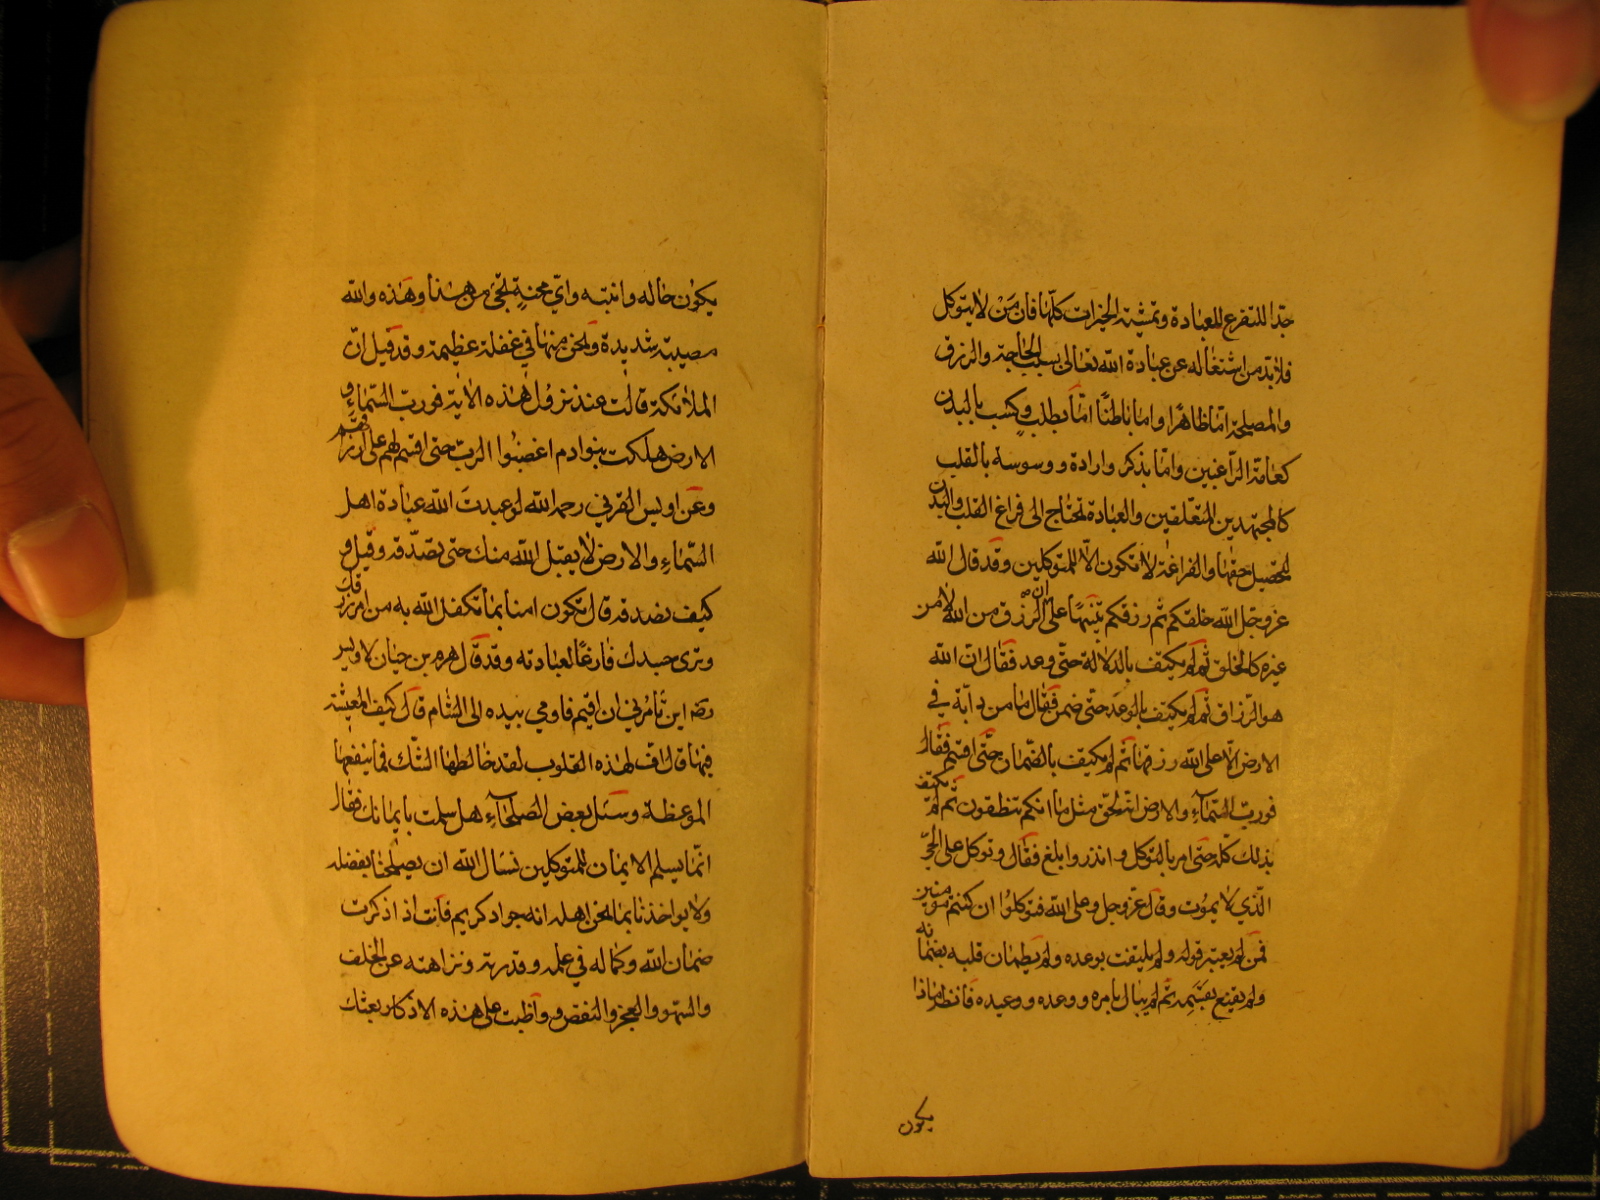 جدا للتفرغ للعبادة وتمشية الخيرات كلها فان من لا يتوكل
فلا بد من اشتغاله عن عبادة الله تعالى بسبب الحاجة والرزق
والمصلحة اما ظاهرا واما باطنا اما بطلب وكسب بالبدن
كعامة الراغبين واما بذكر وارادة ووسوسة بالقلب
كالمجتهدين المتعلقين والعبادة تحتاج الى فراغ القلب والبدن
لتحصيل حقها والفراغة لا تكون الا للمتوكلين وقد قال الله
عز وجل الله خلقكم ثم رزقكم تنبيها على ان الرزق من الله لا من
غيره كالخلق ثم لم يكتف بالدلالة حتى وعد فقال ان الله
هو الرزاق ثم لم يكتف بالوعد حتى ضمن فقال ما من دابة في
الارض الا على الله رزقها ثم لم يكتف بالضمان حتى اقسم فقال
فورب السماء والارض انه لحق مثل ما انكم تنطقون ثم لم يكتف
بذلك كله حتى امر بالتوكل وانذر وابلغ فقال وتوكل على الحي
الذي لا يموت وقال عز وجل وعلى الله فتوكلوا ان كنتم مؤمنين
فمن لم يعتبر قوله ولم يلتفت بوعده ولم يطمان قلبه بضمانه
ولم يقنع بقسمه ثم لم يبال بامره ووعده ووعيده فانظر ماذا
يكون
يكون حاله وانتبه واي محنة تجئ من هنا وهذه والله
مصيبة شديدة ونحن منها في غفلة عظيمة وقد قيل ان
الملائكة قالت عند نزول هذه الاية فورب السماء و
الارض هلكت بنوادم اغضبوا الرب حتى اقسم لهم على ارزاقهم
وعن اويس القرني رحمه الله لو عبدت الله عبادة اهل
السماء والارض لا يقبل الله منك حتى تصدقه وقيل و
كيف نصدقه قال تكون امنا بما تكفل الله به من امر رزقك
وترى جسدك فارغا لعبادته وقد قال هرم بن حيان لاويس
رضه اين تامرني ان اقيم فاومي بيده الى الشام قال كيف المعيشة
فيها قال اف لهذه القلوب لقد خالطها الشك فما ينفعها
الموعظة وسئل بعض الصلحاء هل سلمت بايمانك فقال
انما يسلم الايمان للمتوكلين نسال الله ان يصلحنا بفضله
ولا يواخذنا بما نحن اهله انه جواد كريم فانت اذا ذكرت
ضمان الله وكماله في علمه وقدرته ونزاهته عن الخلف
والسهو والعجز والنقص وواظبت على هذه الاذكار بعثك